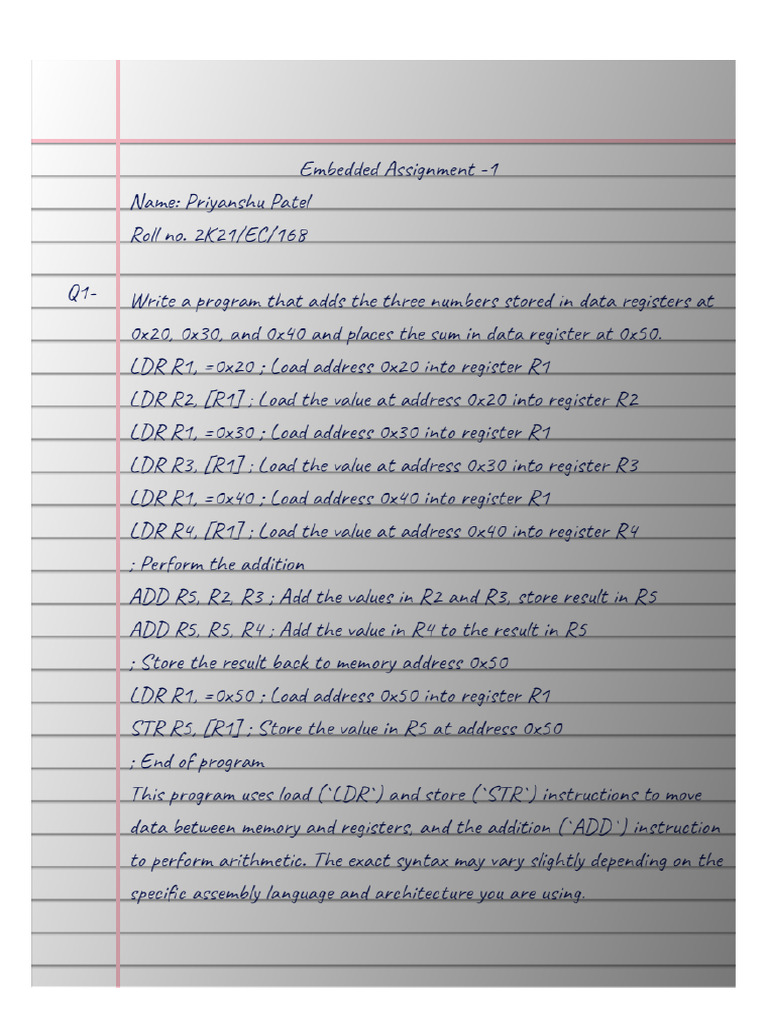 Embedded Assignment -1
Name: Priyanshu Patel
Roll no. 2K21/EC/168
Q1-
Write a program that adds the three numbers stored in data registers at
0x20, 0x30, and 0x40 and places the sum in data register at 0x50.
LDR R1, =0x20 ; Load address 0x20 into register R1
LDR R2, [R1] ; Load the value at address 0x20 into register R2
LDR R1, =0x30 ; Load address 0x30 into register R1
LDR R3, [R1] ; Load the value at address 0x30 into register R3
LDR R1, =0x40 ; Load address 0x40 into register R1
LDR R4, [R1] ; Load the value at address 0x40 into register R4
; Perform the addition
ADD R5, R2, R3 ; Add the values in R2 and R3, store result in R5
ADD R5, R5, R4 ; Add the value in R4 to the result in R5
; Store the result back to memory address 0x50
LDR R1, =0x50 ; Load address 0x50 into register R1
STR R5, [R1] ; Store the value in R5 at address 0x50
; End of program
This program uses load (`LDR`) and store (`STR`) instructions to move
data between memory and registers, and the addition (`ADD`) instruction
to perform arithmetic. The exact syntax may vary slightly depending on the
specific assembly language and architecture you are using.